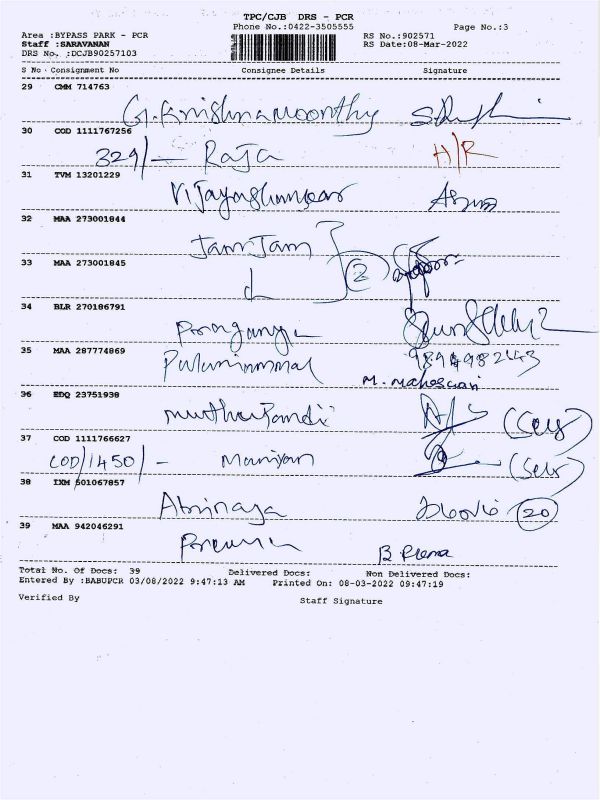 TPC/CJB DRS - PCR
Phone No.:0422-3505555 Page No.:3
Area :BYPASS PARK - PCR RS No.:902571
Staff :SARAVANAN RS Date:08-Mar-2022
DRS No. :DCJB90257103
S No Consignment No Consignee Details Signature
29 CMM 714763
G. Krishnamoorthy
30 COD 1111767256
329/- Raja H/R
31 TVM 13201229
Vijayashankar
32 MAA 273001844
JamJam
33 MAA 273001845
2
34 BLR 270186791
35 MAA 287774869
M. Maheswari
36 EDQ 23751938
Muthupandi (Self)
37 COD 1111766627
COD/1450/- (Self)
38 IXM 501067857
Abinaya 20
39 MAA 942046291
B Prema
Total No. Of Docs: 39 Delivered Docs: Non Delivered Docs:
Entered By :BABUPCR 03/08/2022 9:47:13 AM Printed On: 08-03-2022 09:47:19
Verified By Staff Signature